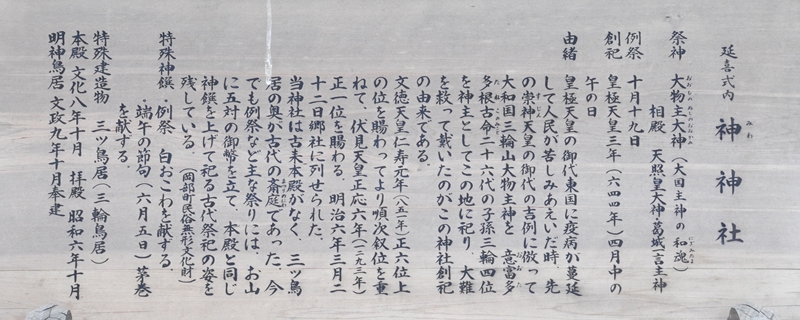 延喜式内　神神社
祭神　大物主大神（大国主神の和魂）
相殿　天照皇大神・葛城一言主神
例祭　十月十九日
創祀　皇極天皇三年（六四四年）四月中の
午の日
由緒　皇極天皇の御代東国に疫病が蔓延
して人民が苦しみあえいだ時、先
の崇神天皇の御代の吉例に倣って
大和国三輪山大物主神を　意富多
多根古命二十六代の子孫三輪四位
を神主としてこの地に祀り、大難
を救って戴いたのがこの神社創祀
の由来である。
文徳天皇仁寿元年（八五一年）正六位上
の位を賜わってより順次叙位を重
ねて、伏見天皇正応六年（一二九三年）
正一位を賜わる。明治六年三月二
十二日郷社に列せられた。
当神社は古来本殿がなく、三ツ鳥
居の奥が古代の斎庭であった。今
でも例祭など主な祭りには、お山
に五対の御幣を立て、本殿と同じ
神饌を上げて祀る古代祭祀の姿を
残している。（岡部町民俗無形文化財）
特殊神饌　・例祭　白おこわを献ずる。
・端午の節句（六月五日）　茅巻
を献ずる。
特殊建造物　三ツ鳥居（三輪鳥居）
本殿　文化八年十月　拝殿　昭和六年十月
明神鳥居　文政九年十月奉建